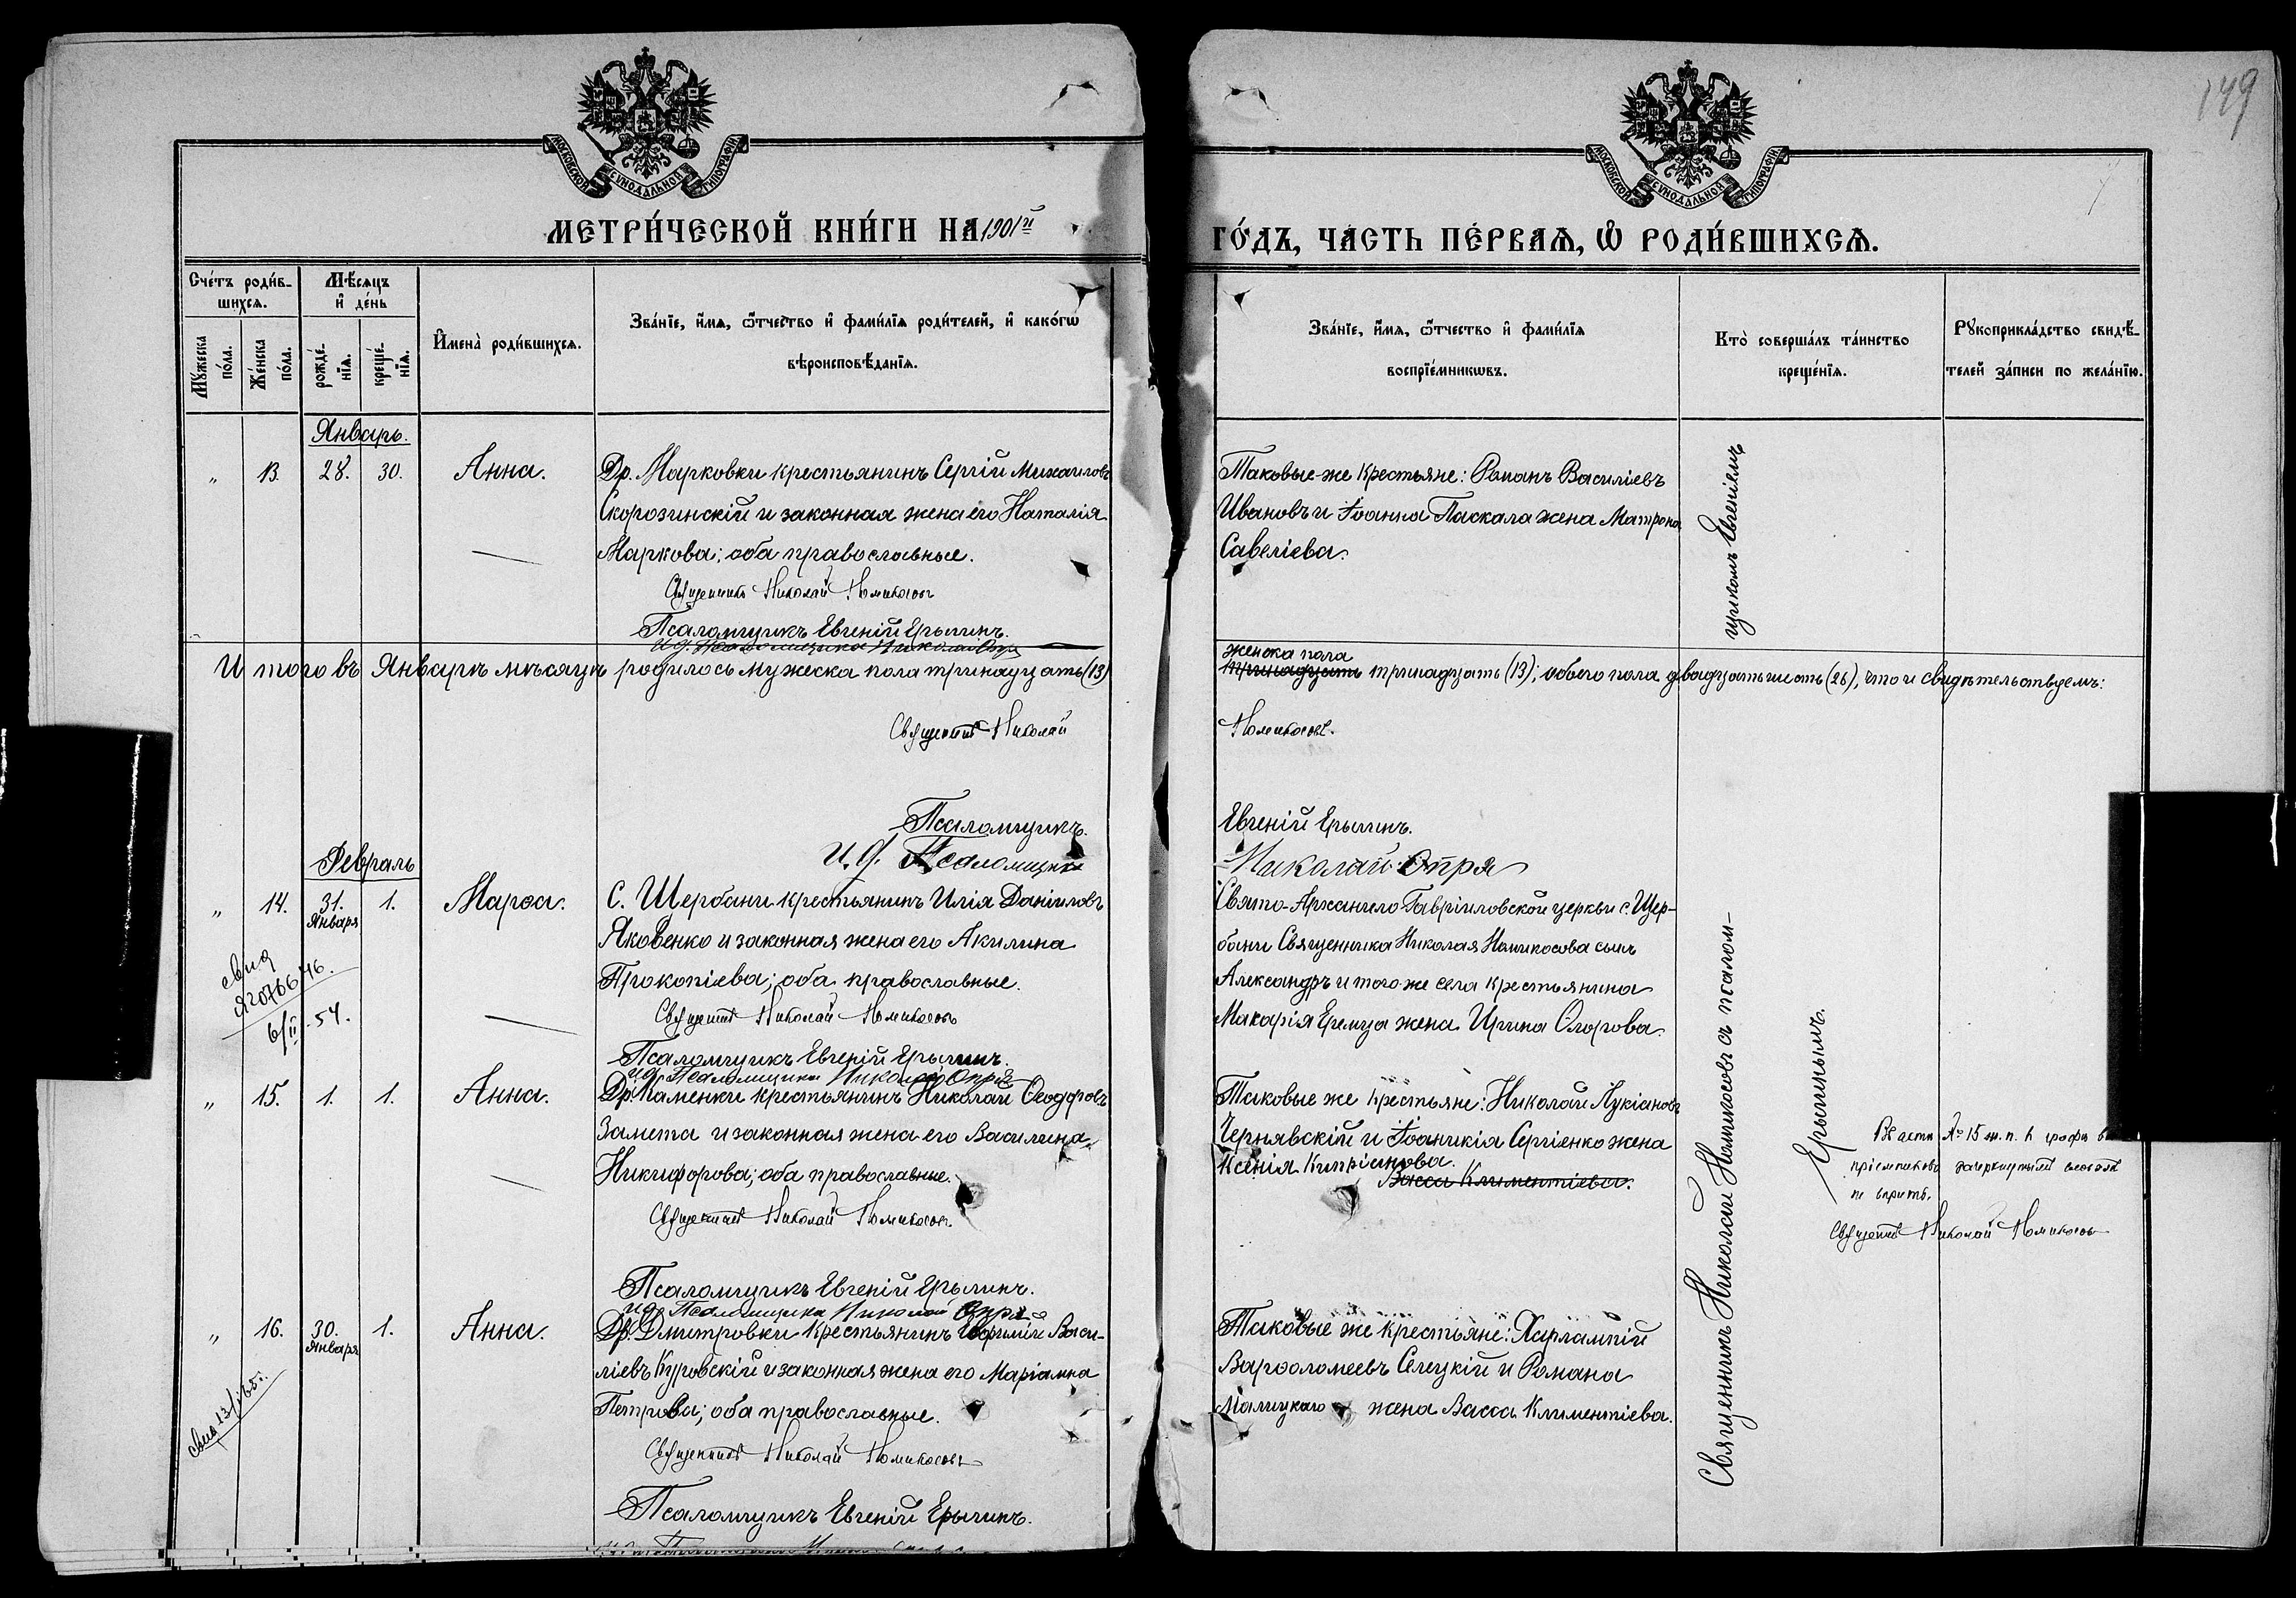 149
МОСКОВСКОЙ СѴНОДАЛЬНОЙ ТИПОГРАФІИ
МОСКОВСКОЙ СѴНОДАЛЬНОЙ ТИПОГРАФІИ
МЕТРИ́ЧЕСКОЙ КНИ́ГИ НА 1901й
ГО́ДЪ, ЧА́СТЬ ПЕ́РВАѦ, Ѡ РОДИ́ВШИХСѦ.
Сче́тъ роди́в-
шихсѧ.
Мꙋжеска по́ла.
Же́нска по́ла.
Мѣ́сѧцъ
и҆ де́нь
рожде́-
нїѧ.
креще́-
нїѧ.
И҆мена̀ роди́вшихсѧ.
Зва́нїе, и҆́мѧ, ѻ҆́тчество и҆ фами́лїѧ роди́телей, и҆ како́гѡ
вѣроисповѣ́данїѧ.
Зва́нїе, и҆́мѧ, ѻ҆́тчество и҆ фами́лїѧ
воспрїе́мникѡвъ.
Кто̀ соверша́лъ та́инство
креще́нїѧ.
Рꙋкоприкла́дство свидѣ́-
телей за́писи по жела́нїю.
Январь.
„ 13. 28. 30. Анна.
Др. Марковки крестьянинъ Сергій Михаиловъ
Скорозинскій и законная жена его Наталія
Маркова; оба православные.
Священникъ Николай Номикосовъ
Псаломщикъ Евгеній Ерылинъ.
Таковые-же крестьяне: Романъ Василіевъ
Ивановъ и Іоанна Паскала жена Матрона
Савеліева.
Итого въ Январѣ мѣсяцѣ родилось мужеска пола тринадцать (13)
женска пола
тринадцать тринадцать (13); обоего пола двадцать шесть (26), что и свидѣтельствуемъ:
Священникъ Николай
Номикосовъ.
Псаломщикъ.
Евгеній Ерылинъ.
И. д. Псаломщика
Николай Опря
Февраль
„ 14. 31. Января 1. Марѳа.
С. Щербани крестьянинъ Илія Даніиловъ
Яковенко и законная жена его Акилина
Прокопіева; оба православные.
Священникъ Николай Номикосовъ
Псаломщикъ Евгеній Ерылинъ.
и д. Псаломщика Николай Опря
Свято-Архангело-Гавріиловской церкви с. Щер-
бани Священника Николая Номикосова сынъ
Александръ и того-же села крестьянина
Макарія Еремца жена Ирина Ѳлорова.
„ 15. 1. 1. Анна.
Др. Каменки крестьянинъ Николай Ѳеодоровъ
Замета и законная жена его Василина
Никифорова; оба православные.
Священникъ Николай Номикосовъ.
Псаломщикъ Евгеній Ерылинъ.
и д. Псаломщика Николай Опря
Таковые же крестьяне: Николай Лукіановъ
Чернявскій и Іоанникія Сергіенко жена
Ксенія Кипріанова.
Васса Климентіева.
не вѣрить.
Священникъ Николай Номикосовъ
„ 16. 30. Января 1. Анна.
Др. Дмитровки крестьянинъ Евѳимій Васи-
ліевъ Куровскій и законная жена его Маріанна
Петрова; оба православные.
Священникъ Николай Номикосовъ
Псаломщикъ Евгеній Ерылинъ.
Таковые же крестьяне: Харлампій
Варѳоломеевъ Селецкій и Романа
Малицкаго жена Васса Климентіева.
Священникъ Николай Номикосовъ съ псалом-
щикомъ Евгеніемъ
Ерылинымъ.